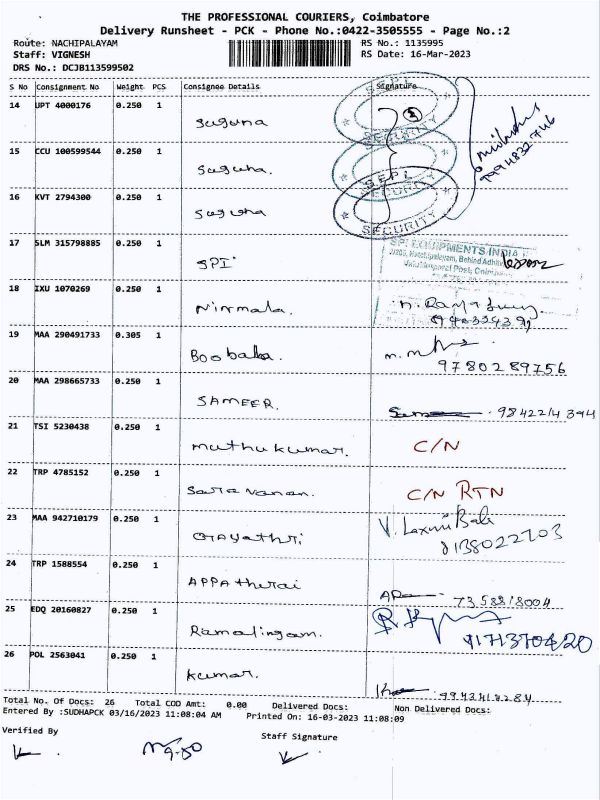 THE PROFESSIONAL COURIERS, Coimbatore
Delivery Runsheet - PCK - Phone No.:0422-3505555 - Page No.:2
Route: NACHIPALAYAM
RS No.: 1135995
Staff: VIGNESH
RS Date: 16-Mar-2023
DRS No.: DCJB113599502
S No Consignment No Weight PCS Consignee Details Signature
14 UPT 4000176 0.250 1 Suguna
15 CCU 100599544 0.250 1 Suguna.
16 KVT 2794300 0.250 1 Suguna
SEPL SECURITY
SEPL SECURITY
SEPL SECURITY
17 SLM 315798885 0.250 1 SPI
SPI EQUIPMENTS INDIA
18 IXU 1070269 0.250 1 Nirmala.
19 MAA 290491733 0.305 1 Boobala.
9780289756
20 MAA 298665733 0.250 1 SAMEER.
9842214394
21 TSI 5230438 0.250 1 muthukumar. C/N
22 TRP 4785152 0.250 1 Saravanan. C/N RTN
23 MAA 942710179 0.250 1 Gayathri V. Laxmi Bala
8138022703
24 TRP 1588554 0.250 1 APPAthurai
7358818004
25 EDQ 20160827 0.250 1 Ramalingam.
26 POL 2563041 0.250 1 kumar.
Total No. Of Docs: 26 Total COD Amt: 0.00 Delivered Docs: Non Delivered Docs:
Entered By :SUDHAPCK 03/16/2023 11:08:04 AM Printed On: 16-03-2023 11:08:09
Verified By
Staff Signature